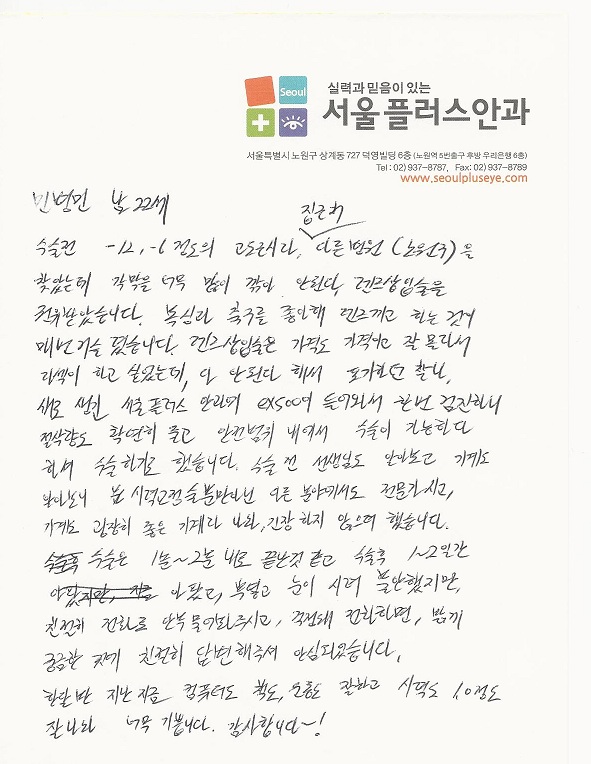 Seoul
실력과 믿음이 있는
서울플러스안과
서울특별시 노원구 상계동 727 덕영빌딩 6층 (노원역 5번출구 후방 우리은행 6층)
Tel : 02) 937-8787, Fax: 02) 937-8789
www.seoulpluseye.com
남 22세
집근처
수술전 -12, -6 정도의 고도근시라, 다른 병원 (노원구)을
찾았는데 각막을 너무 많이 깎아 안된다, 렌즈삽입술을
권유받았습니다. 농구와 축구를 좋아해 렌즈끼고 하는 것이
매번 가슴 떨렸습니다. 렌즈삽입술은 가격도 가격이고 잘 몰라서
라섹이 하고 싶었는데, 다 안된다 해서 포기하던 찰나,
새로 생긴 서울플러스 안과에 EX500이 들어와서 한번 검진하니
절삭량도 확연히 줄고 안전범위 내에서 수술이 가능하다
해서 수술하기로 했습니다. 수술 전 선생님도 알아보고 기계도
알아보니 시력교정술뿐만아닌 다른 분야에서도 전문가시고,
기계도 굉장히 좋은 기계라 나와, 긴장하지 않으며 했습니다.
수술은 1분~2분 내로 끝난것 같고 수술후 1~2일간
아팠고, 부옇고 눈이 시려 불안했지만,
친절히 전화로 안부 물어봐주시고, 걱정돼 전화하면, 밝게
궁금한 것에 친절히 답변해주셔 안심되었습니다.
한달 반 지난 지금 컴퓨터도 책도, 운동도 잘하고 시력도 1.0정도
잘나와 너무 기쁩니다. 감사합니다~!